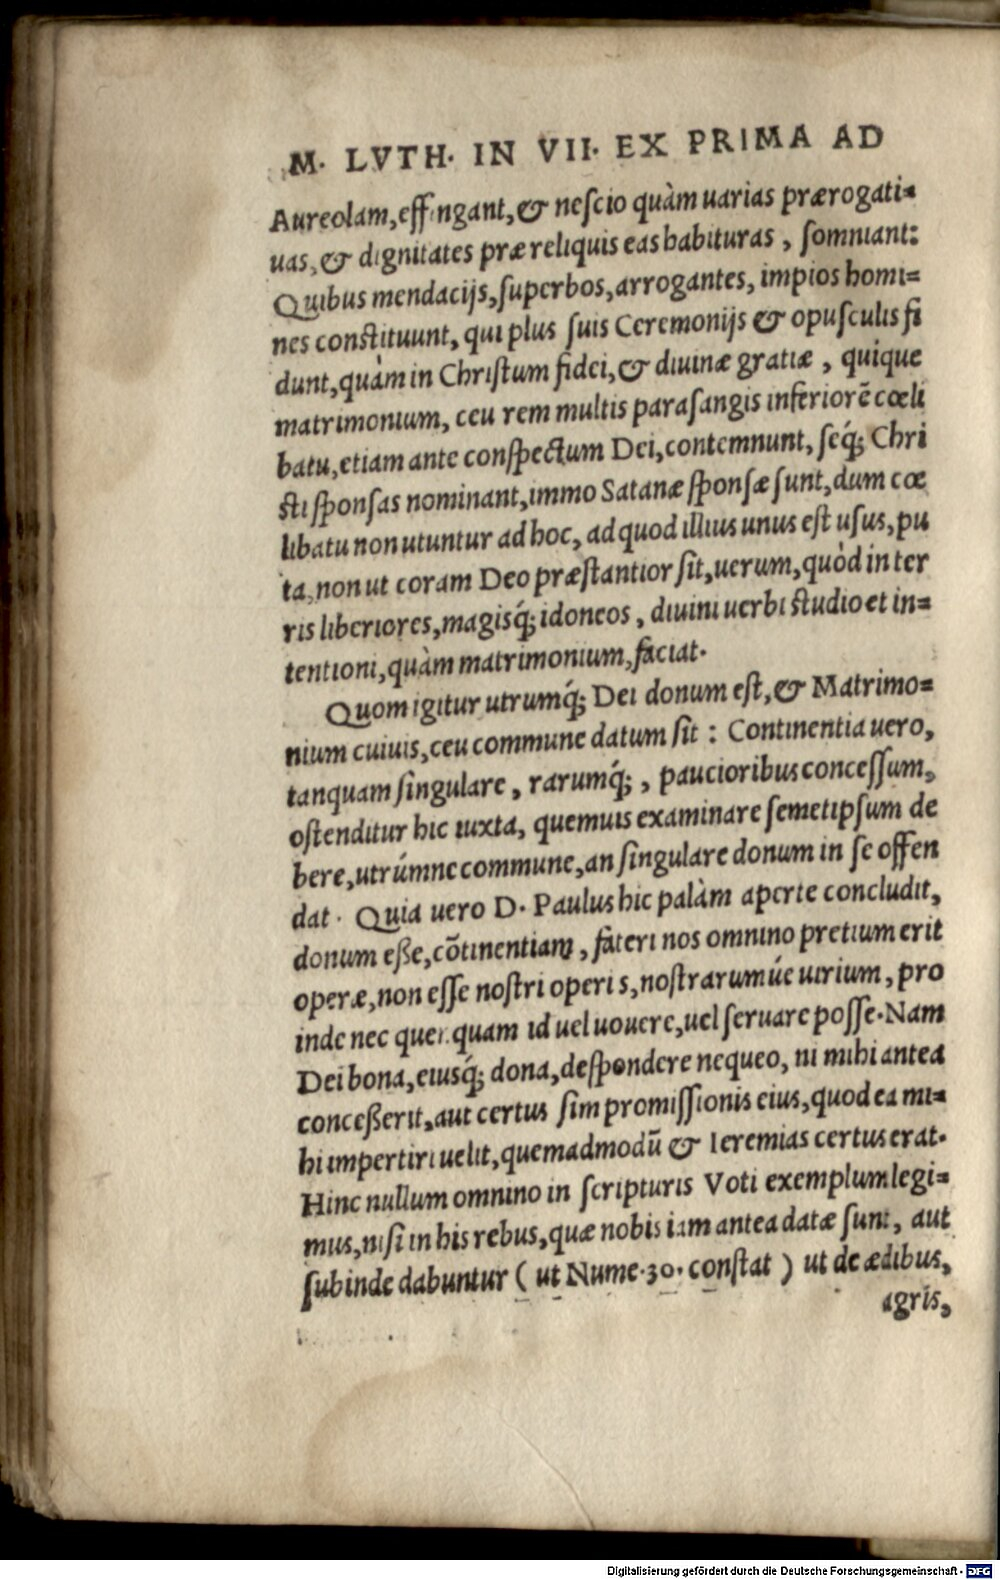 M. LVTH. IN VII. EX PRIMA AD
Aureolam, effingant, & nescio quàm uarias prærogati=
uas, & dignitates præ reliquis eas habituras, somniant:
Quibus mendacijs, superbos, arrogantes, impios homi=
nes constituunt, qui plus suis Ceremonijs & opusculis fi
dunt, quàm in Christum fidei, & diuinæ gratiæ, quique
matrimonium, ceu rem multis parasangis inferiorẽ cœli
batu, etiam ante conspectum Dei, contemnunt, seq́; Chri
sti sponsas nominant, immo Satanæ sponsæ sunt, dum cœ
libatu non utuntur ad hoc, ad quod illius unus est usus, pu
ta, non ut coram Deo præstantior sit, uerum, quòd in ter
ris liberiores, magisq́; idoneos, diuini uerbi studio et in=
tentioni, quàm matrimonium, faciat.
Quom igitur utrumq́; Dei donum est, & Matrimo=
nium cuiuis, ceu commune datum sit: Continentia uero,
tanquam singulare, rarumq́;, paucioribus concessum,
ostenditur hic iuxta, quemuis examinare semetipsum de
bere, utrúmne commune, an singulare donum in se offen
dat. Quia uero D. Paulus hic palàm aperte concludit,
donum eße, cõtinentiam, fateri nos omnino pretium erit
operæ, non esse nostri operis, nostrarumúe uirium, pro
inde nec quenquam id uel uouere, uel seruare posse. Nam
Dei bona, eiusq́; dona, despondere nequeo, ni mihi antea
conceßerit, aut certus sim promissionis eius, quod ea mi=
hi impertiri uelit, quemadmodũ & Ieremias certus erat.
Hinc nullum omnino in scripturis Voti exemplum legi=
mus, nisi in his rebus, quæ nobis iam antea datæ sunt, aut
subinde dabuntur (ut Nume. 30. constat) ut de ædibus,
agris,
Digitalisierung gefördert durch die Deutsche Forschungsgemeinschaft - DFG